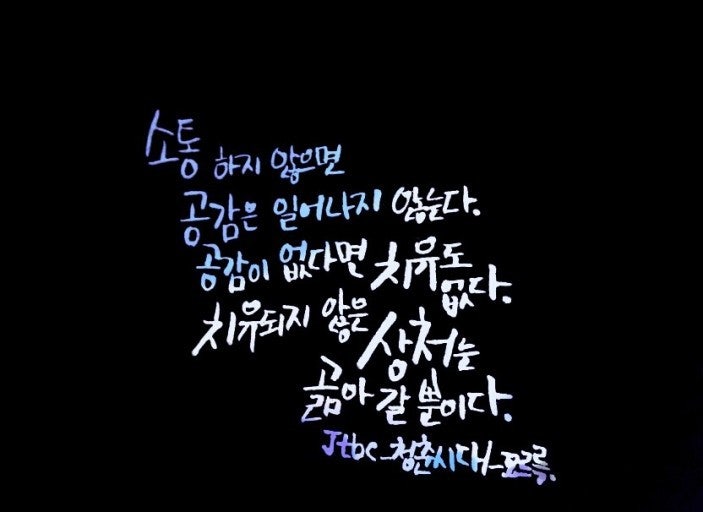 소통 하지 않으면
공감은 일어나지 않는다.
공감이 없다면 치유도 없다.
치유되지 않은 상처는
곪아 갈 뿐이다.
Jtbc-청춘시대-모르륵.